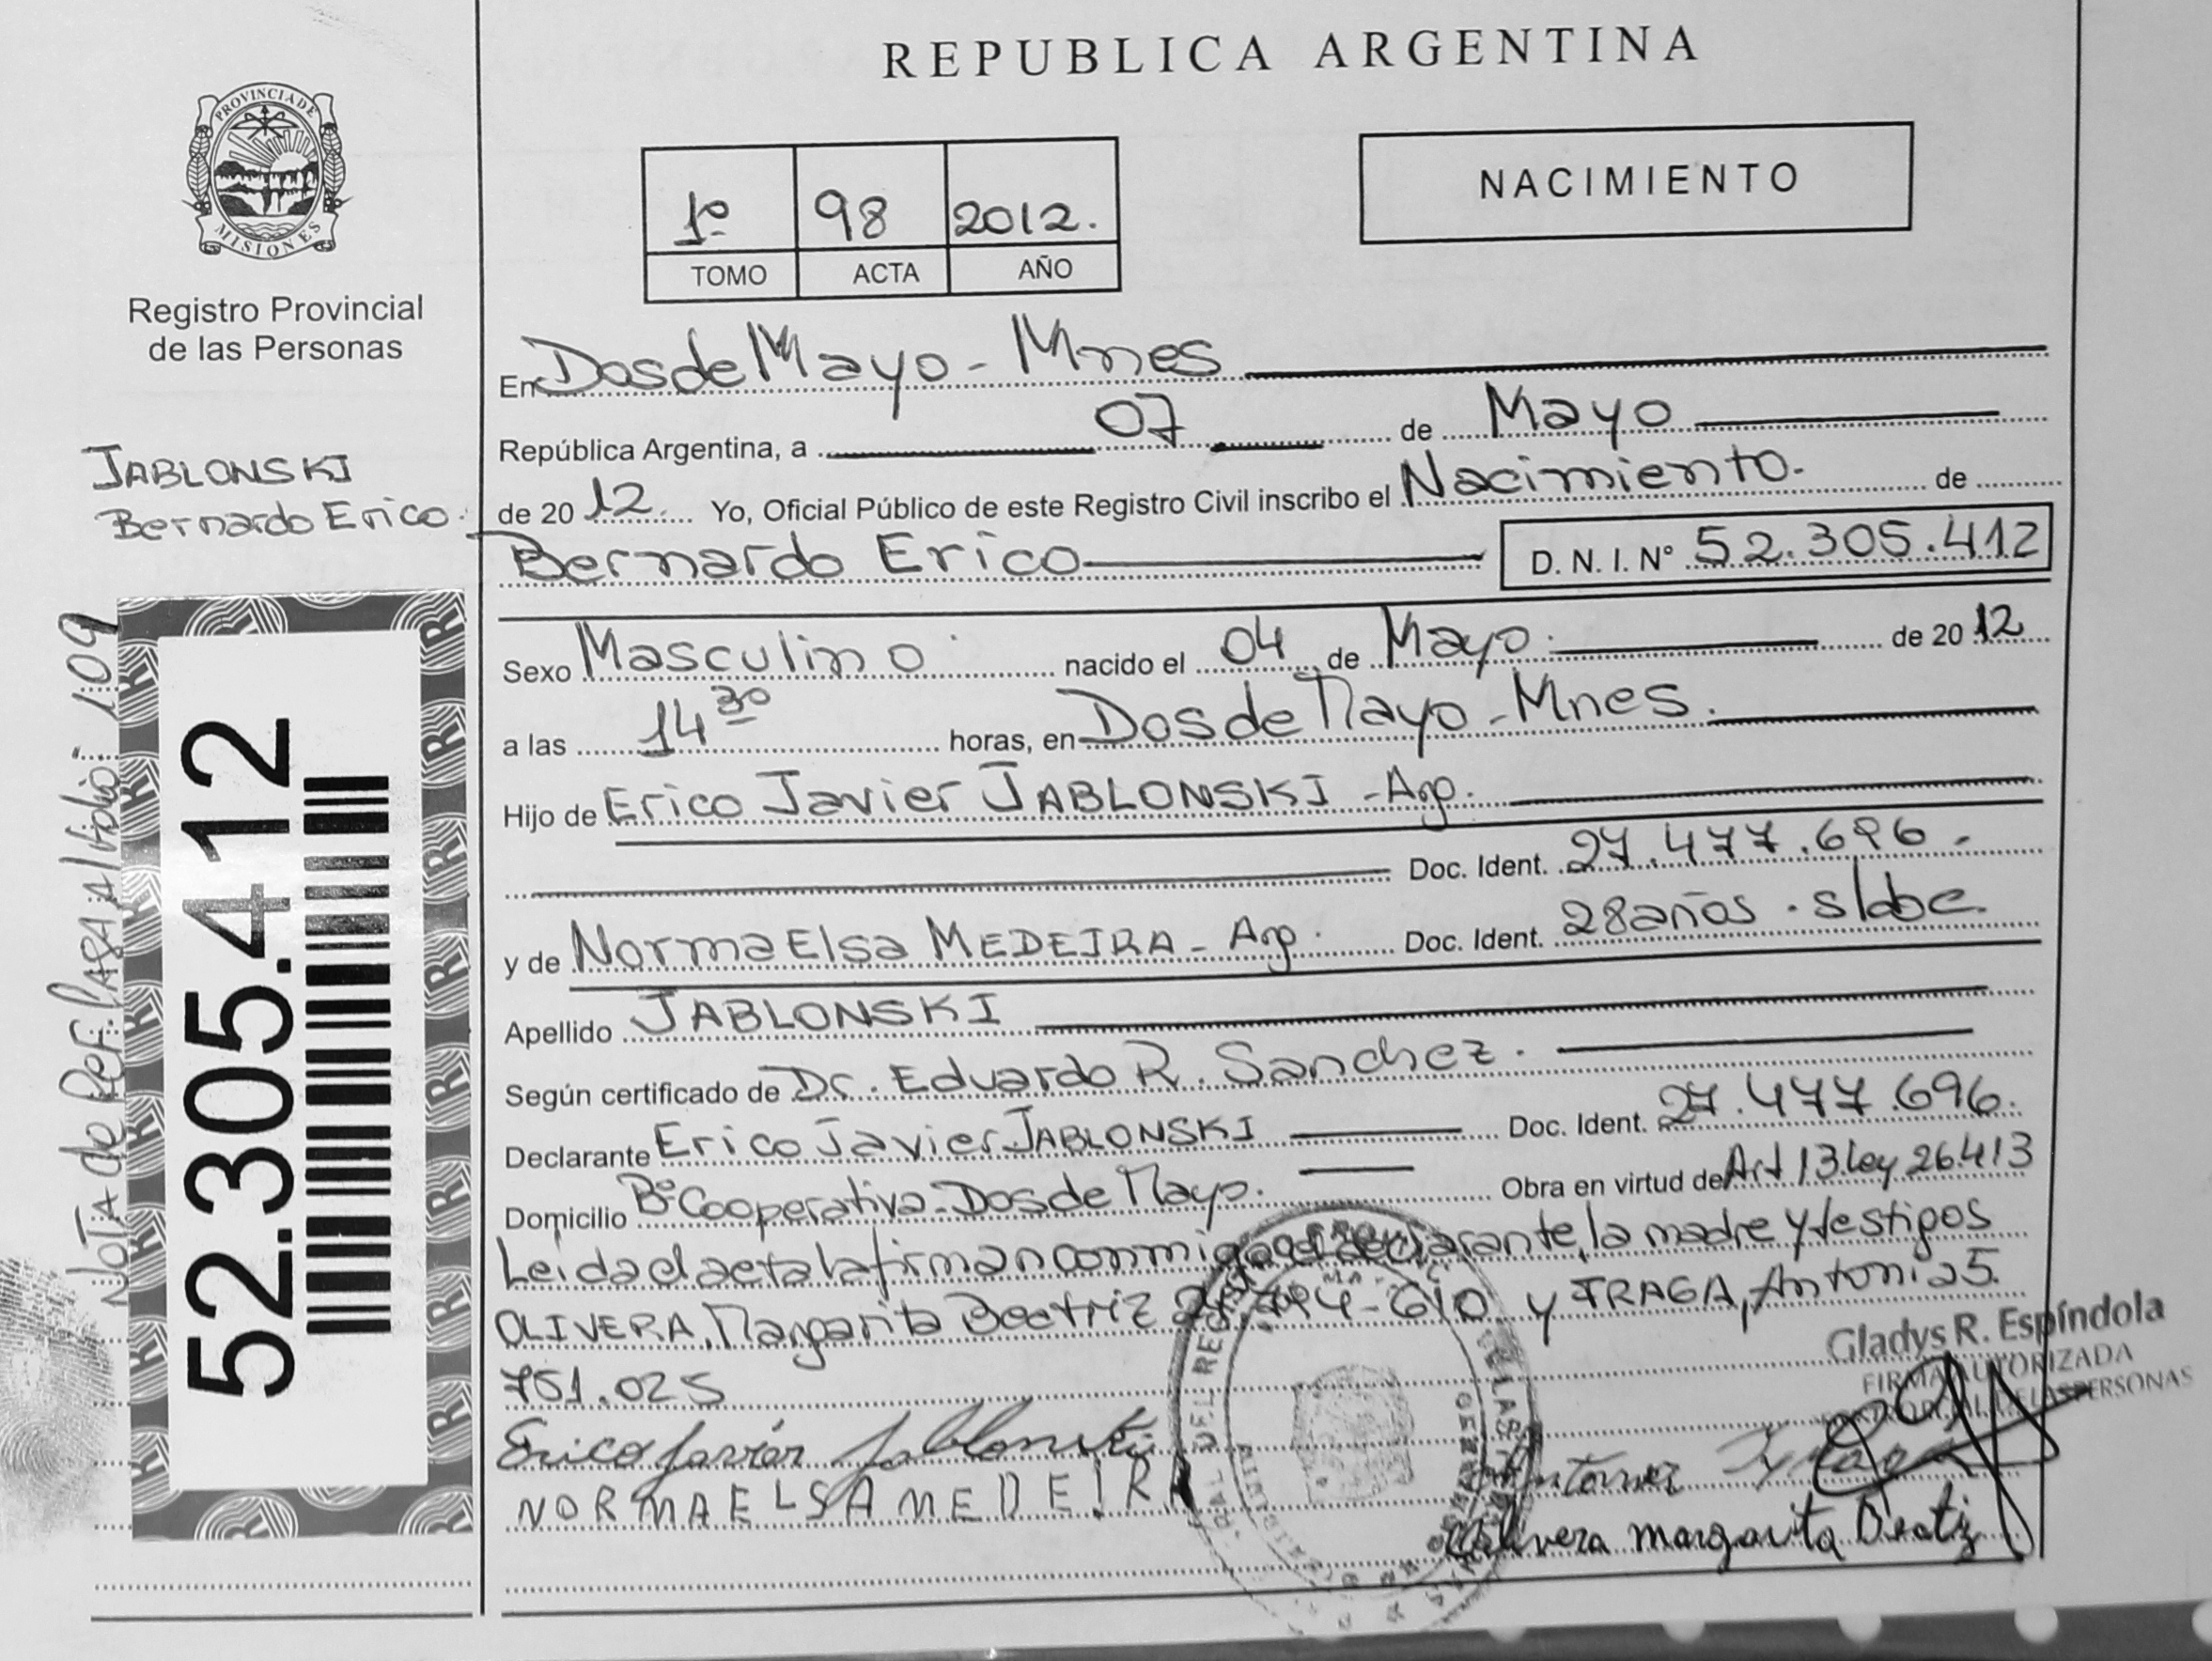 REPUBLICA ARGENTINA
PROVINCIA DE MISIONES
Registro Provincial
de las Personas
NACIMIENTO
1º 98 2012.
TOMO ACTA AÑO
En Dos de Mayo - Mnes
República Argentina, a 07 de Mayo
de 2012. Yo, Oficial Público de este Registro Civil inscribo el Nacimiento. de
Bernardo Erico D. N. I. Nº 52.305.412
JABLONSKI
Bernardo Erico.
Sexo Masculino nacido el 04 de Mayo. de 2012
a las 14 30 horas, en Dos de Mayo - Mnes.
Hijo de Erico Javier JABLONSKI - Arg.
Doc. Ident. 27.477.696 -
y de Norma Elsa MEDEIRA - Arg. Doc. Ident. 28 años . s/doc.
Apellido JABLONSKI
Según certificado de Dr. Eduardo R. Sanchez.
Declarante Erico Javier JABLONSKI Doc. Ident. 27.477.696.
Domicilio Bº Cooperativa - Dos de Mayo. Obra en virtud de Art 13 Ley 26413
Leida el acta la firman conmigo el declarante, la madre y testigos
OLIVERA, Margarita Beatriz y FRAGA, Antonia 5.
751.025
Erico Javier Jablonski
NORMA ELSA MEDEIRA
Gladys R. Espíndola
FIRMA AUTORIZADA
Antonia
Olivera Margarita Beatriz
NOTA de Ref. PASA A/ folio: 109
52.305.412